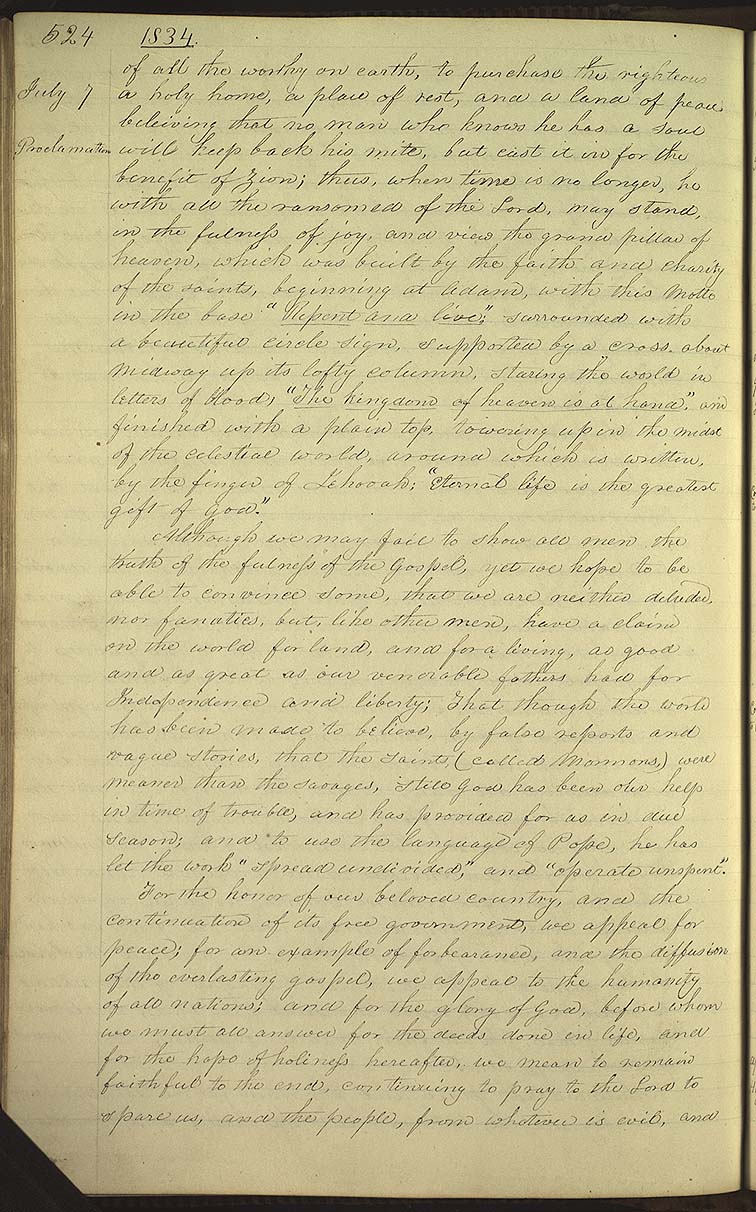 524 1834.
of all the worthy on earth, to purchase the righteous
July 7 a holy home, a place of rest, and a land of peace,
beleiving that no man who knows he has a soul
Proclamation will keep back his mite, but cast it in for the
benefit of Zion; thus, when time is no longer, he
with all the ransomed of the Lord, may stand,
in the fulness of joy, and view the grand pillar of
heaven, which was built by the faith and charity
of the saints, beginning at Adam, with this Motto
in the base "Repent and live"; surrounded with
a beautiful circle sign, supported by a cross about
midway up its lofty column, staring the world in
letters of blood, "The kingdom of heaven is at hand", and
finished with a plain top, towering up in the midst
of the celestial world, around which is written,
by the finger of Jehovah; "Eternal life is the greatest
gift of God."
Although we may fail to show all men the
truth of the fulness of the Gospel, yet we hope to be
able to convince some, that we are neither deluded,
nor fanatics, but, like other men, have a claim
on the world for land, and for a living, as good
and as great as our venerable fathers had for
Independence and liberty; That though the world
has been made to believe, by false reports and
vague stories, that the saints, (called Mormons,) were
meaner than the savages, still God has been our help
in time of trouble, and has provided for us in due
season; and to use the language of Pope, he has
let the work "spread undivided," and "operate unspent".
For the honor of our beloved country, and the
continuation of its free government, we appeal for
peace; for an example of forbearance, and the diffusion
of the everlasting gospel, we appeal to the humanity
of all nations; and for the glory of God, before whom
we must all answer for the deeds done in life, and
for the hope of holiness hereafter, we mean to remain
faithful to the end, continuing to pray to the Lord to
spare us, and the people, from whatever is evil, and